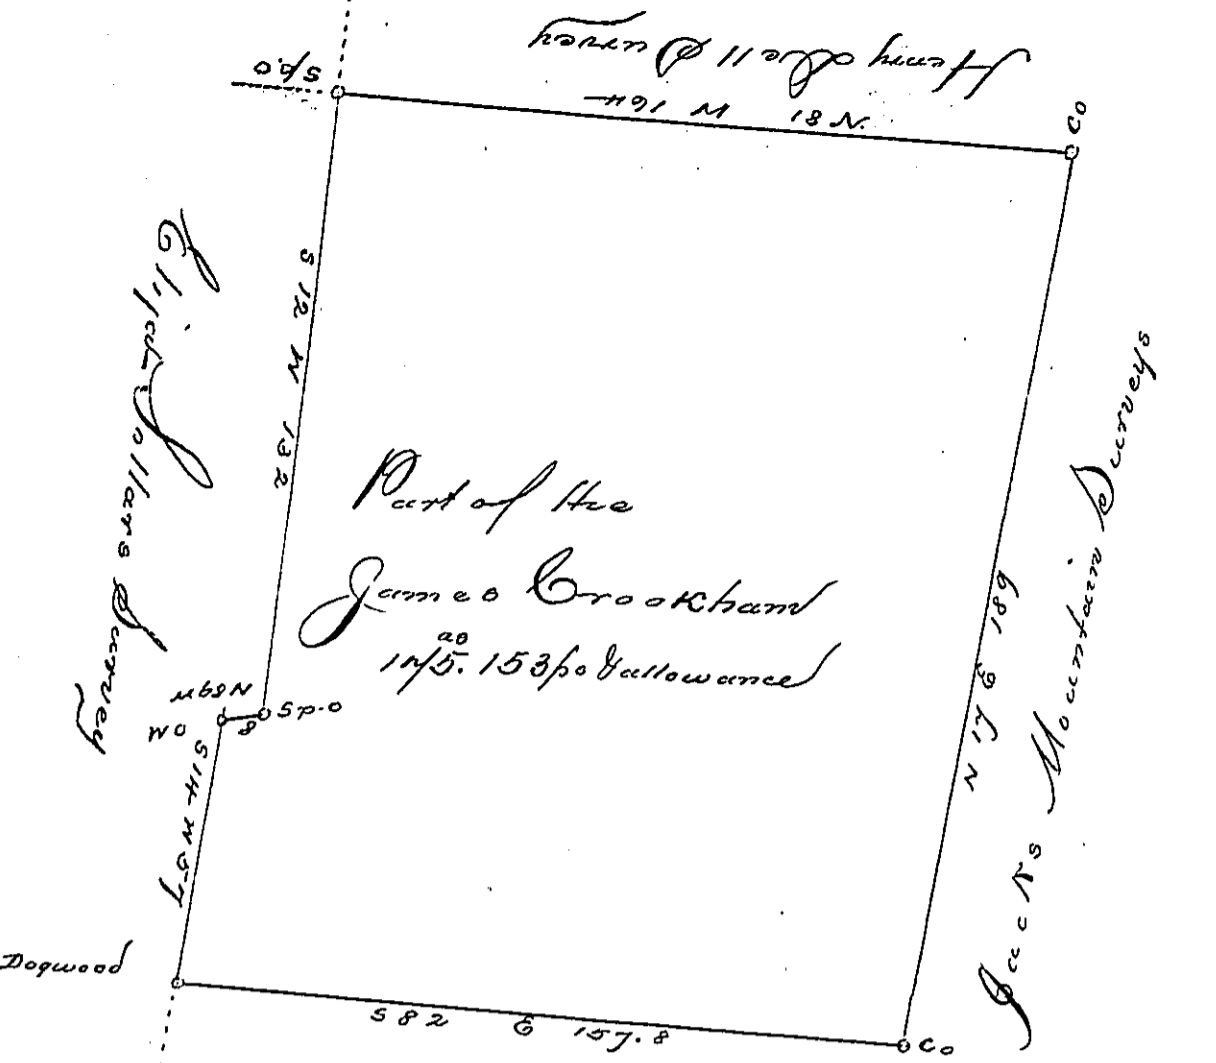 Henry Dell Survey
Sp.o
N. 81 W 164
Co
S 12 W 132
Elijah Sollars Survey
Part of the
James Crookham
175 as. 153 ps & allowance
N 17 E 189
Jacks Mountain Surveys
N 89 W
8
Sp.o
WO
S 14 W 57
Dogwood
S 82 E 157.8
Co